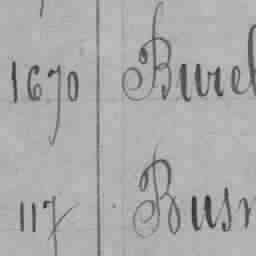 1670 Burel
117 Busn